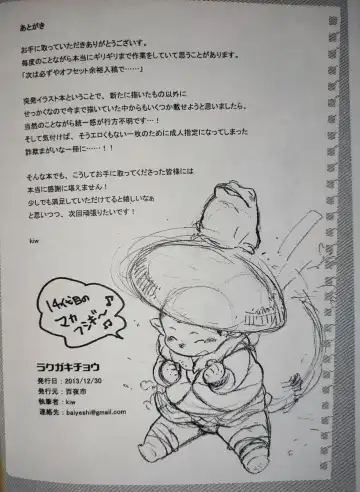 あとがき
お手に取っていただきありがとうございます。
毎度のことながら本当にギリギリまで作業をしていて思うことがあります。
「次は必ずやオフセット余裕入稿で……」
突発イラスト本ということで、新たに描いたもの以外に
せっかくなので今まで描いていた中からもいくつか載せようと思いましたら、
当然のことながら統一感が行方不明です…！
そして気付けば、そうエロくもない一枚のために成人指定になってしまった
詐欺まがいな一冊に……！！
そんな本でも、こうしてお手に取ってくださった皆様には
本当に感謝に堪えません！
少しでも満足していただけてると嬉しいなぁ
と思いつつ、次回頑張りたいです！
kiw
14代目の
マカ
フシギ〜
ラクガキチョウ
発行日：2013/12/30
発行元：百夜市
執筆者：kiw
連絡先：baiyeshi@gmail.com